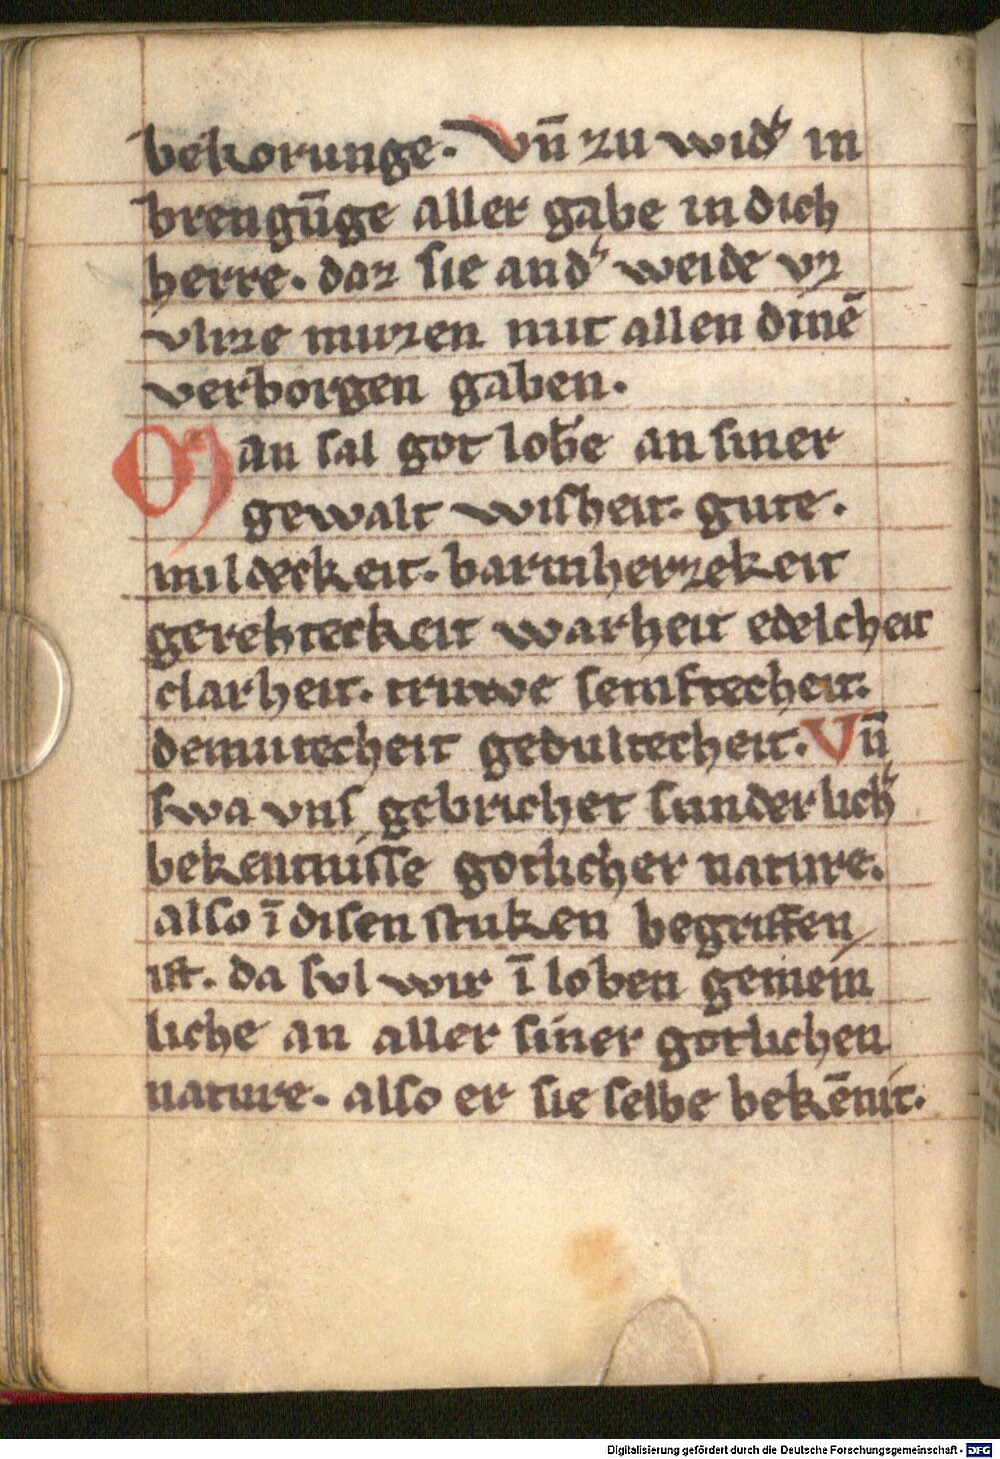 bekorunge. Vn̄ zu widʾ in
brengūge aller gabe in dich
herre. daz sie andʾ weide vz
vlize muzen mit allen dinē
verborgen gaben.
Man sal got lobē an siner
gewalt wisheit. gute.
mildeckeit. barmherzekeit
gerehteckeit warheit edelcheit
clarheit. truwe semftecheit.
demutecheit gedultecheit. Vn̄
swa vns gebrichet sunderlichʾ
bekentnisse gotlicher nature.
also ī disen stuken begriffen
ist. da sul wir ī loben gemein
liche an aller siner gotlichen
nature. also er sie selbe bekēnit.
Digitalisierung gefördert durch die Deutsche Forschungsgemeinschaft - DFG